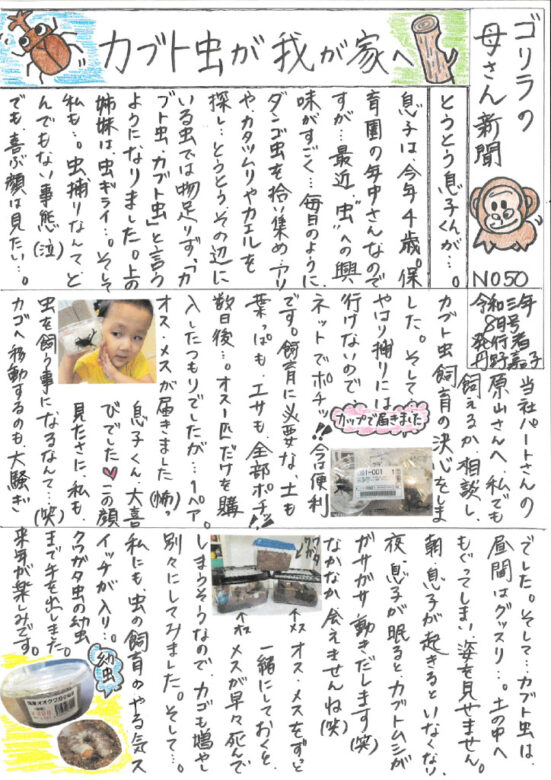 ゴリラの
母さん新聞
NO50
令和三年
8月号
発行者
丹野嘉子
カブト虫が我が家へ
とうとう息子くんが…。
息子は今年4歳。保
育園の年中さんなので
すが…最近、“虫”への興
味がすごく…毎日のように
ダンゴ虫を拾い集め…アリ
やカタツムリやカエルを
探し…とうとう、その辺に
いる虫では物足りず、「カ
ブト虫、カブト虫」と言う
ようになりました。上の
姉妹は、虫ギライ…。そして
私も…。虫捕りなんてと
んでもない事態(泣)
でも喜ぶ顔は見たい…。
当社パートさんの
原山さんへ、私でも
飼えるか相談し、
カブト虫飼育の決心をしま
した。そして…
やはり捕りには
行けないので
ネットでポチッ!!今は便利
です。飼育に必要な、土も
葉っぱも、エサも、全部ポチッ!!
数日後…。オス1匹だけを購
入したつもりでしたが…1ペア。
オス・メスが届きました(怖)。
息子くん、大喜
びでした♥この顔
見たさに、私も、
虫を飼う事になるなんて…(笑)
カゴへ移動するのも、大騒ぎ
カップで届きました
でした。そして…カブト虫は
昼間はグッスリ…。土の中へ
もぐってしまい、姿を見せません。
朝、息子が起きるといなくなり、
夜、息子が眠るとカブトムシが
ガサガサ動きだします(笑)
なかなか会えませんね(笑)
オス・メスをずっと
一緒にしておくと、
メスが早々死んで
しまうそうなので、カゴも増やし
別々にしてみました。そして…。
私にも虫の飼育のやる気ス
イッチが入り…。
クワガタ虫の幼虫
まで手を出しました。
来年が楽しみです。
クワガタ
↑メス
↑オス
幼虫
国産オオクワガタ幼虫
001-001